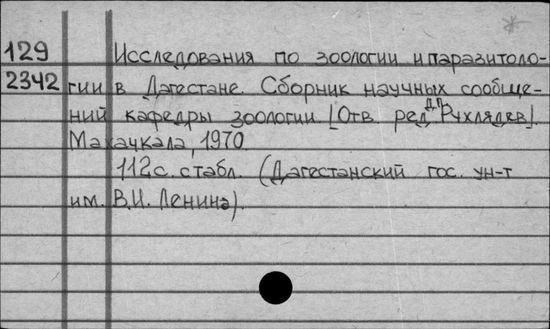 129 Исследования по зоологии и паразитоло-
2342 гии в Дагестане. Сборник научных сообще-
ний кафедры зоологии [Отв. ред. Д.П. Рухлядев].
Махачкала, 1970
112 с. с табл. (Дагестанский гос. ун-т
им. В.И. Ленина).